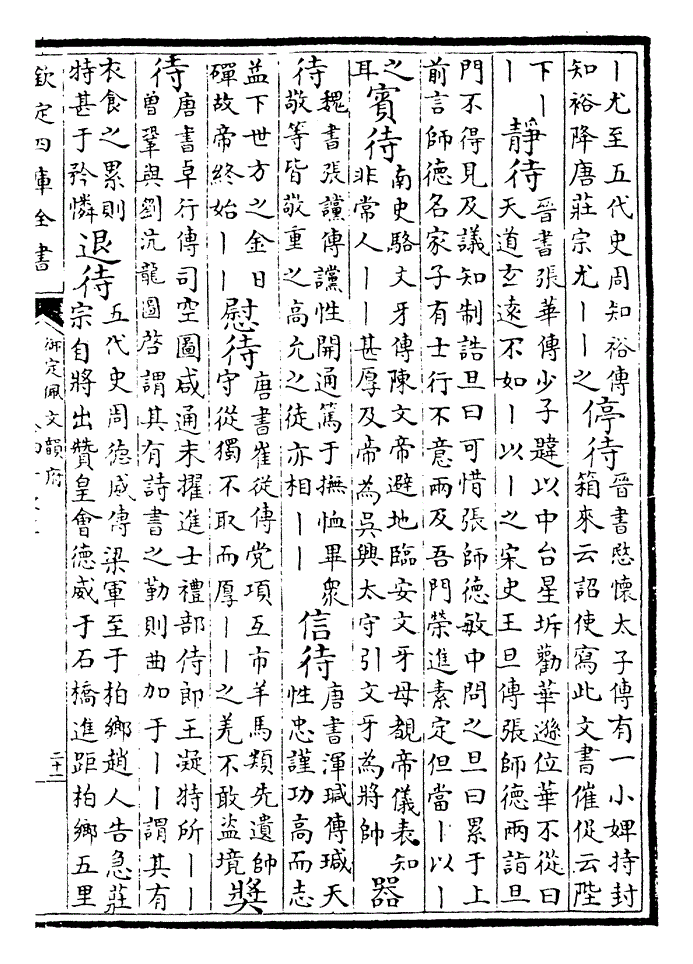 丨尤至五代史周知裕傳
知裕降唐莊宗尤丨丨之
停待
晉書愍懷太子傳有一小婢持封
箱來云詔使寫此文書催促云陛
下丨
丨
靜待
晉書張華傳少子韙以中台星坼勸華遜位華不從曰
天道玄遠不如丨以丨之宋史王旦傳張師德兩詣旦
門不得見及議知制誥旦曰可惜張師德敏中問之旦曰累于上
前言師德名家子有士行不意兩及吾門榮進素定但當丨以丨
之
耳
賓待
南史駱文牙傳陳文帝避地臨安文牙母覩帝儀表知
非常人丨丨甚厚及帝為吳興太守引文牙為將帥
器
待
魏書張讜傳讜性開通篤于撫恤畢衆
敬等皆敬重之高允之徒亦相丨丨
信待
唐書渾瑊傳瑊天
性忠謹功高而志
益下世方之金日
磾故帝終始丨丨
慰待
唐書崔從傳党項互市羊馬類先遺帥
守從獨不取而厚丨丨之羌不敢盗境
奬
待
唐書卓行傳司空圖咸通末擢進士禮部侍郎王凝特所丨丨
曾鞏與劉沆龍圖啓謂其有詩書之勤則曲加于丨丨謂其有
衣食之累則
特甚于矜憐
退待
五代史周德威傳梁軍至于柏鄉趙人告急莊
宗自將出贊皇會德威于石橋進距柏鄉五里
欽定四庫全書
御定佩文韻府
二十二